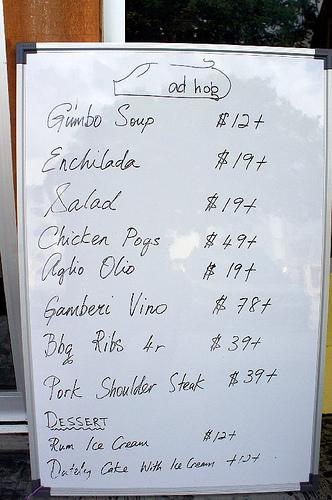 ad hob
Gumbo Soup $12+
Enchilada $19+
Salad $19+
Chicken Pogs $49+
Aglio Olio $19+
Gamberi Vino $78+
Bbq Ribs 4r $39+
Pork Shoulder Steak $39+
DESSERT
Rum Ice Cream $12+
Cake With Ice Cream +12+